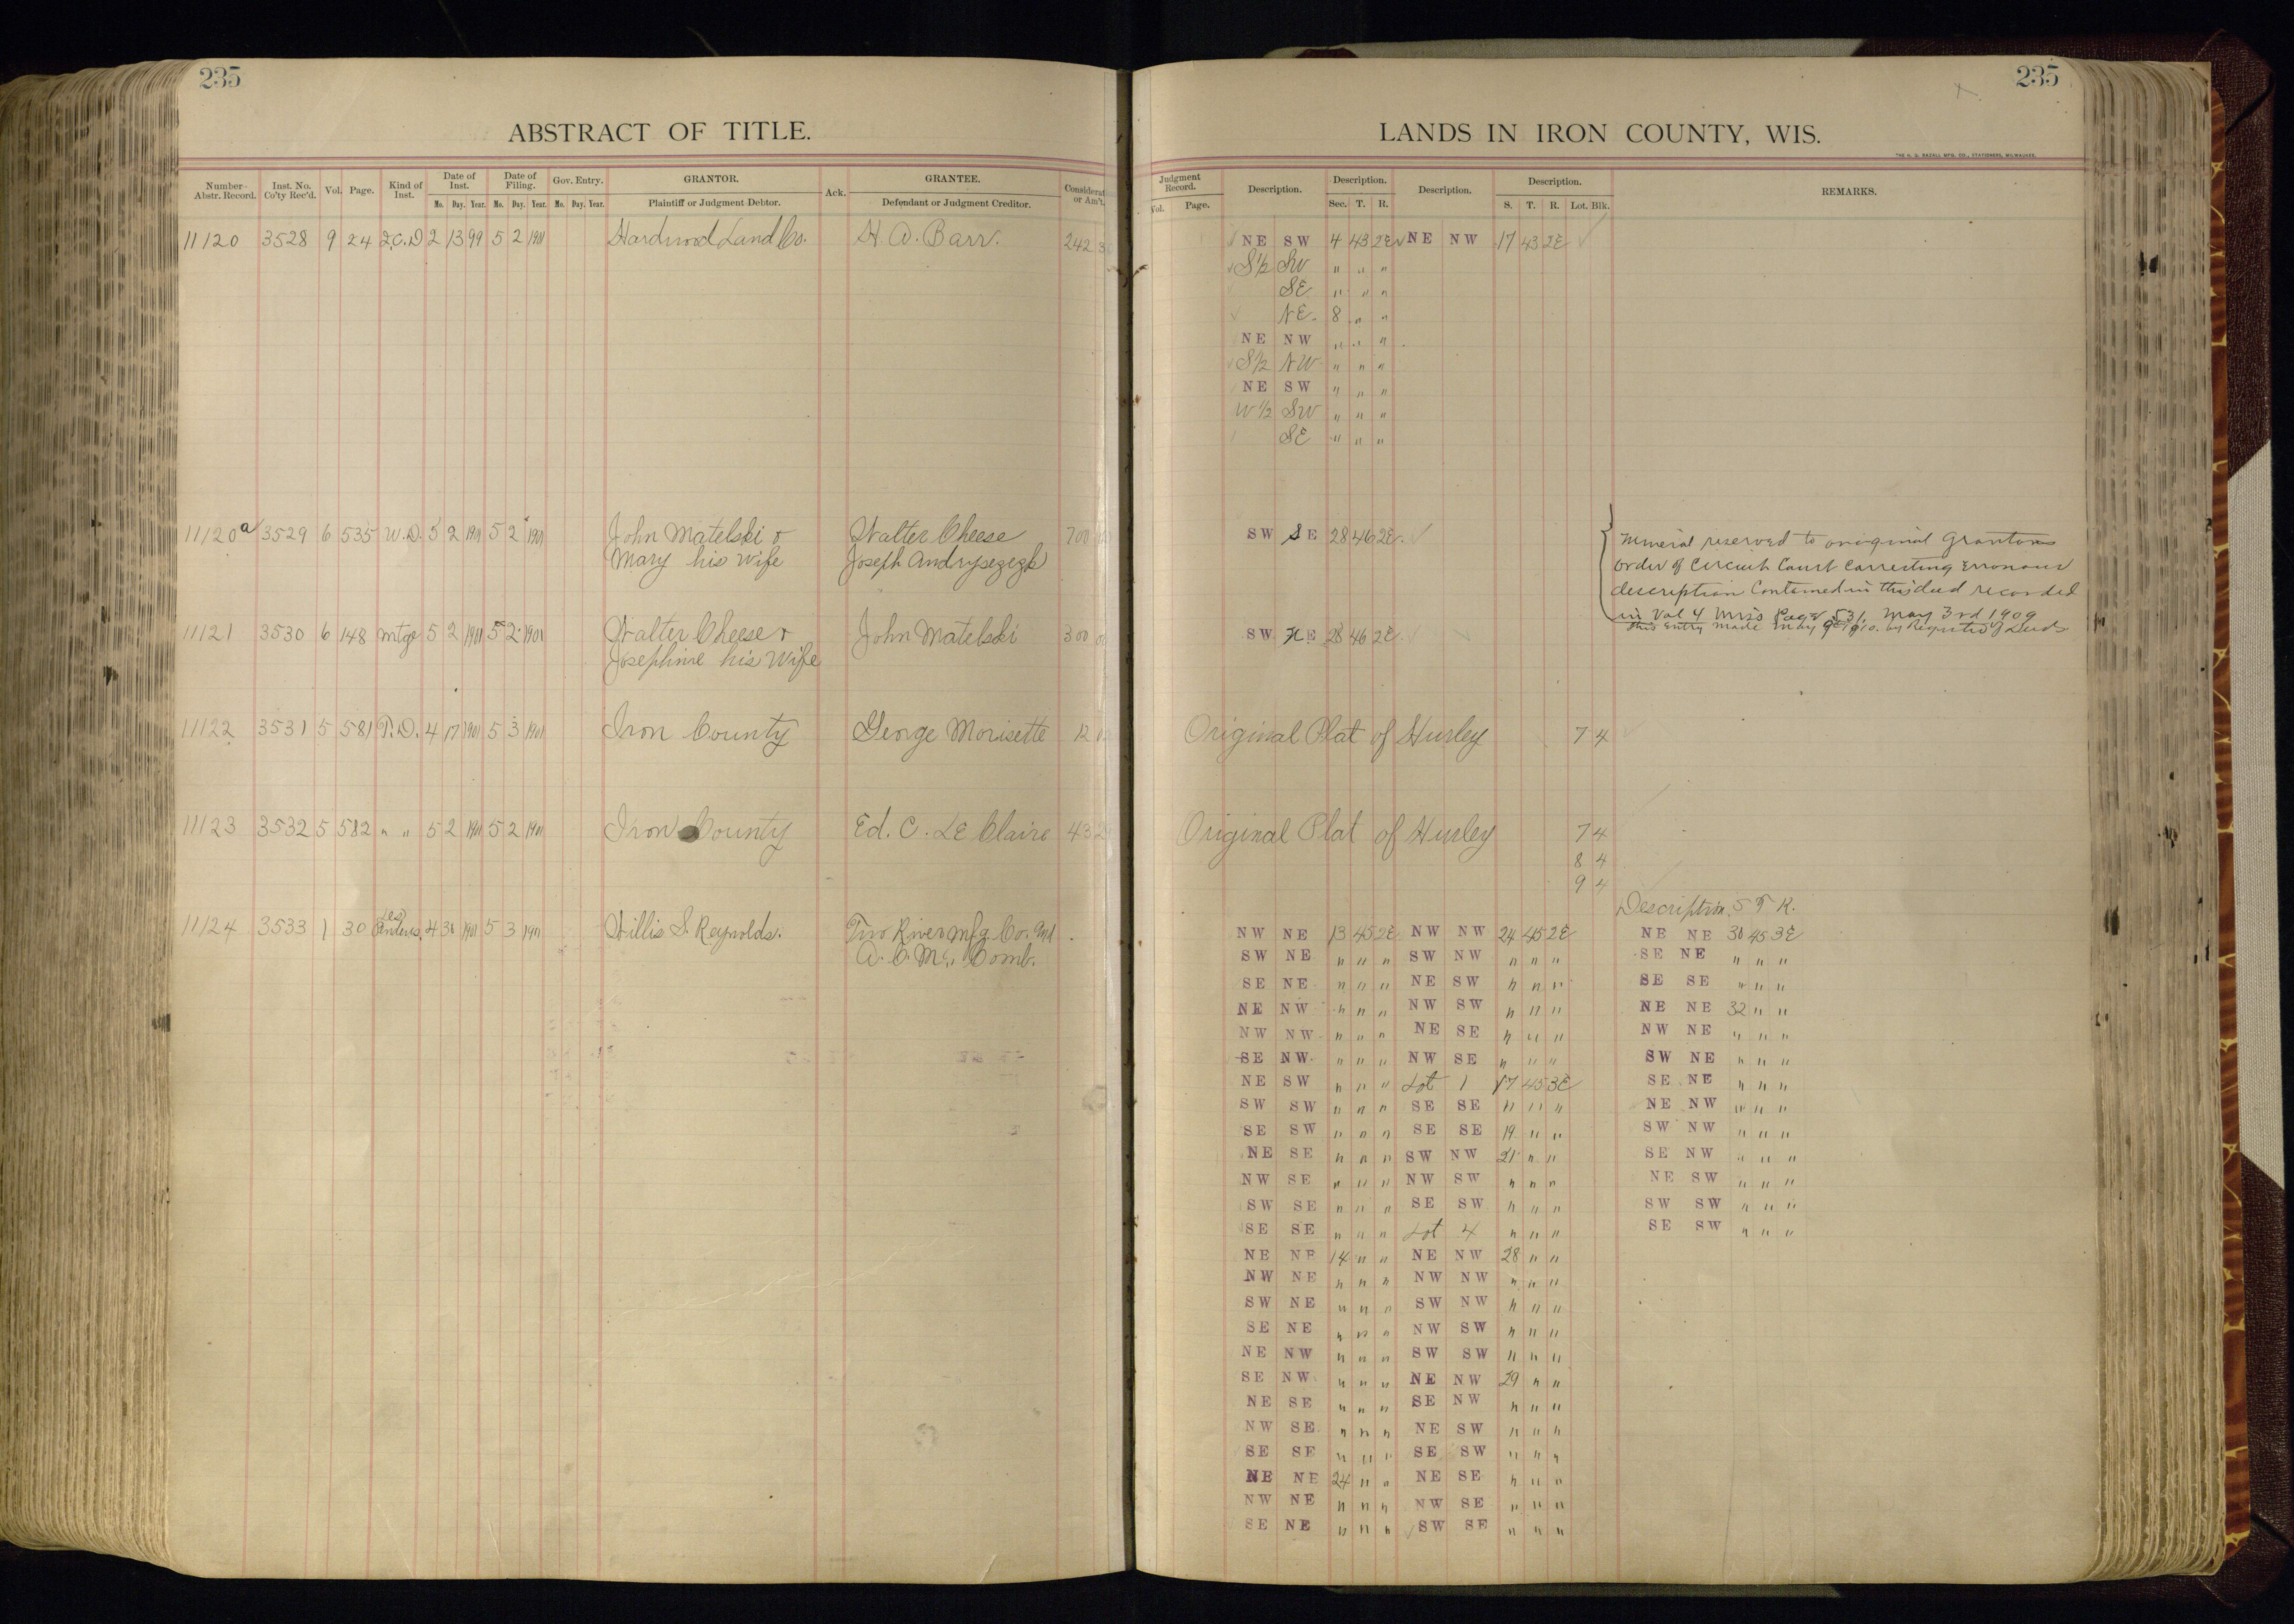 235
ABSTRACT OF TITLE.
Number Abstr. Record. Inst. No. Co'ty Rec'd. Vol. Page. Kind of Inst. Date of Inst. Mo. Day. Year. Date of Filing. Mo. Day. Year. Gov. Entry. Mo. Day. Year. GRANTOR. Plaintiff or Judgment Debtor. Ack. GRANTEE. Defendant or Judgment Creditor. Considerat or Am't.
11120 3528 9 24 Q.C.D 2 13 99 5 2 1901 Hardwood Land Co. H A. Barr. 242
11120a 3529 6 535 W.D. 5 2 1901 5 2 1901 John Matelski & Walter Cheese 700
Mary his wife Joseph
11121 3530 6 148 mtge 5 2 1901 5 2 1901 Walter Cheese & John Matelski 300
Josephine his Wife
11122 3531 5 581 T.D. 4 17 1901 5 3 1901 Iron County George Morisette 12
11123 3532 5 582 " " 5 2 1901 5 2 1901 Iron County Ed. C. LE Claire 43
11124 3533 1 30 Les Pendens. 4 30 1901 5 3 1901 Willis S. Reynolds. Two River Mfg. Co. And
A. C. Mc. Comb.
235
LANDS IN IRON COUNTY, WIS.
THE H. G. RAZALL MFG. CO., STATIONERS, MILWAUKEE.
Judgment Record. Vol. Page. Description. Description. Sec. T. R. Description. Description. S. T. R. Lot. Blk. REMARKS.
NE SW 4 43 2E NE NW 17 43 2E
S½ SW " " "
SE " " "
NE 8 " "
NE NW " " "
S½ NW " " "
NE SW " " "
W½ SW " " "
SE " " "
SW SE 28 46 2E
Mineral reserved to original Grantors
Order of Circuit Court Correcting Erronous
description Contained in this deed recorded
in Vol 4 Miss Page 531. May 3rd 1909
This Entry made May 9 1910. by Register of Deeds
SW NE 28 46 2E
Original Plat of Hurley 7 4
Original Plat of Hurley 7 4
8 4
9 4
Description. S T R.
NW NE 13 45 2E NW NW 24 45 2E NE NE 30 45 3E
SW NE " " " SW NW " " " SE NE " " "
SE NE " " " NE SW " " " SE SE " " "
NE NW " " " NW SW " " " NE NE 32 " "
NW NW " " " NE SE " " " NW NE " " "
SE NW " " " NW SE " " " SW NE " " "
NE SW " " " Lot 1 17 45 3E SE NE " " "
SW SW " " " SE SE " " " NE NW " " "
SE SW " " " SE SE 19 " " SW NW " " "
NE SE " " " SW NW 21 " " SE NW " " "
NW SE " " " NW SW " " " NE SW " " "
SW SE " " " SE SW " " " SW SW " " "
SE SE " " " Lot 4 " " " SE SW " " "
NE NE 14 " " NE NW 28 " "
NW NE " " " NW NW " " "
SW NE " " " SW NW " " "
SE NE " " " NW SW " " "
NE NW " " " SW SW " " "
SE NW " " " NE NW 29 " "
NE SE " " " SE NW " " "
NW SE " " " NE SW " " "
SE SE " " " SE SW " " "
NE NE 24 " " NE SE " " "
NW NE " " " NW SE " " "
SE NE " " " SW SE " " "